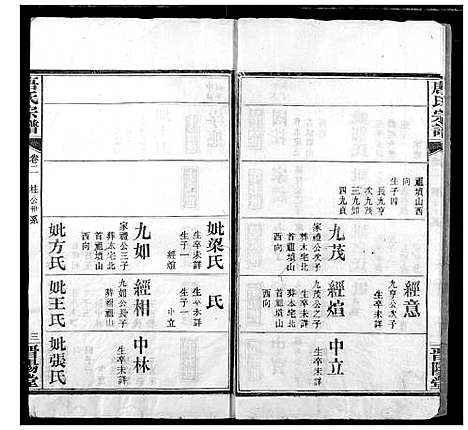 唐氏宗譜
首麗墳山西
向
生子四
長九亨
次九茂
三九如
四九貞
經意
九亨公次子
生卒未詳
九茂
家禮公次子
葬木宅北
首麗墳山
西向
經煊
九茂公之子
生卒未詳
葬本宅北
首麗墳山
西向
中立
生卒未詳
晋陽堂
妣梁氏
生卒未詳
生子一
經煊
氏
生卒未詳
生子一
中立
九如
家禮公三子
葬木宅北
首麗墳山
西向
經相
九如公長子
葬祖墳山
中林
生卒未詳
妣方氏
妣王氏
妣張氏
唐氏宗譜
卷二
桂公世系
三
晋陽堂